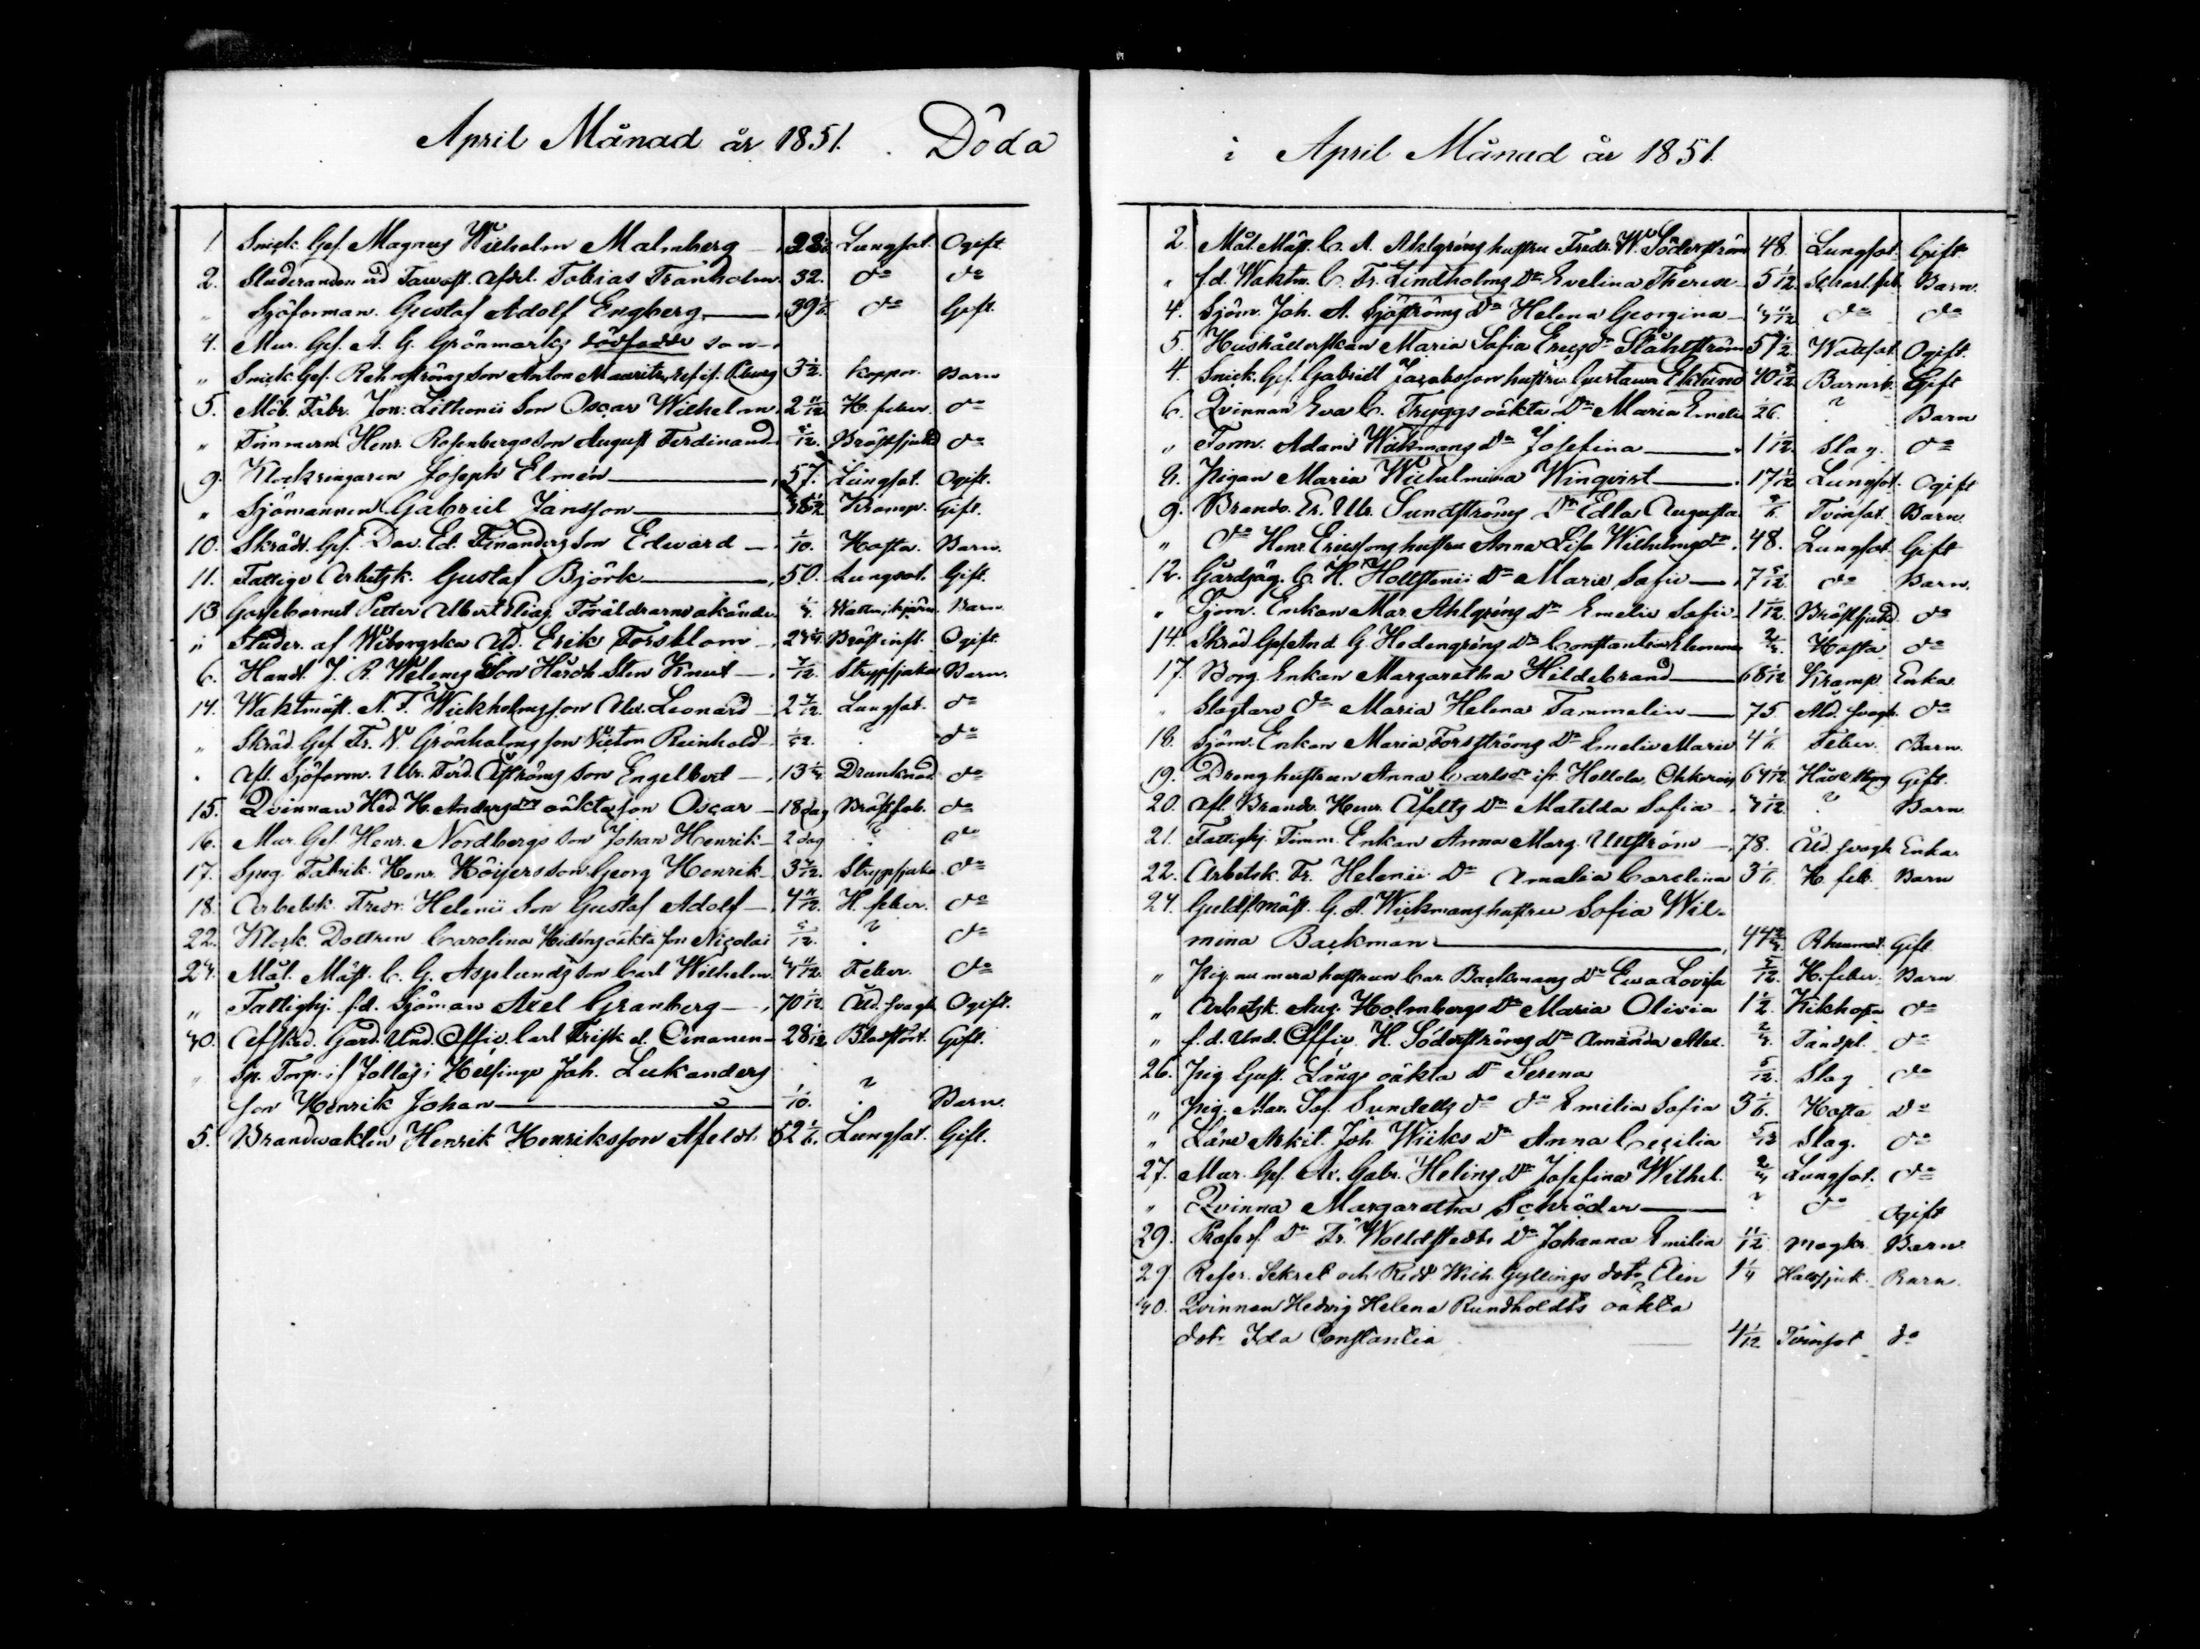 April Månad år 1851. Döda
1 Snick. Gef. Magnus Wilhelm Malmberg Lungsot. Ogift.
2. Studeranden vid Tavast. Afdel. Tobias Tranholm 32. do do
" Sjöforman. Gustaf Adolf Engberg do Gift.
4. Mur. Gef. A. G. Grönmarks dödfödde son
" Snick. Gef. Rehnströms son Anton Mauritz Koppor. Barn
5. Möb. Fabr. Jon: Lithonii Son Oscar Wilhelm 2 11/12 H. feber. do
" Timmerm. Henr. Rosenbergs son August Ferdinand Bröstsjukd do
9. Klockringaren Joseph Elmén 57. Lungsot. Ogift.
" Sjömannen Gabriel Jansson Kramp. Gift.
10. Skräd. Gef. Dav. Ed. Finanders son Edvard 1/10. Hosta. Barn.
11. Fattige Arbetsk. Gustaf Björk 50. Lungsot. Gift.
13 Gossebarnet Petter Albert Elias, Föräldrarne okände Barn
" Studer. af Wiborgska Afd. Erik Forsblom Bröstinfl. Ogift
6. Handl. J. R. Son Knut Strypsjukan Barn.
14. Waktmäst. A. F. Wickholms son Alex. Leonard 2 Lungsot. do
" Skräd. Gef. Fr. W. Grönholms son Victor Reinhold ? do
" Afl. Sjöform. Ulr. Ferd. Åströms son Engelbert 13 Drunknad do
15. Qvinnan Hed. H. Andersdrs oäkta son Oscar 18 dag Bröstsot. do
16. Mur. Gef. Henr. Nordbergs son Johan Henrik 2 dag ? do
17. Speg. Fabrik. Henr. Höijers son Georg Henrik 3 Strypsjuka do
18. Arbetsk. Fredr. Helenii Son Gustaf Adolf 4 11/12. H. feber. do
22. Klock. Dottren Carolina oäkta son Nicolai ? do
24. Mål. Mäst. C. G. Asplunds son Carl Wilhelm Feber. do
" Fattighj. f.d. Sjöman Axel Granberg 70 1/12 Åld. svagh. Ogift.
30. Afsked. Gard. Und. Offic. Carl Frisk 28 Gift.
" Sp. Torp. i Helsinge Joh. Lukanders
son Henrik Johan 1/10. ? Barn.
5. Brandvakten Henrik Henriksson Afeldt Lungsot. Gift.
i April Månad år 1851.
2. Mål. Mäst. C. A. Ahlgréns hustru Fredr. W. Söderström 48. Lungsot. Gift.
" f.d. Waktm. C. Fr. Lindholms Dr Evelina Therese 5 1/12. Scharl. feb. Barn.
4. Sjöm. Joh. A. Sjöströms Dr Helena Georgina do do
5. Hushållerskan Maria Sofia Ståhlström Wattusot. Ogift.
4. Snick. Gef. Gabriel Jacobsson hustru Gustava Eklund Barnsb. Gift
6. Qvinnan Eva C. Tryggs oäkta Dr Maria Emelie ? Barn
" Torm. Adam Wickmans Dr Josefina 1 1/12. Slag. do
9. Pigan Maria Wilhelmina Winqvist 17 1/12 Lungsot. Ogift
9. Brandv. Er. Ulr. Sundströms Dr Edla Augusta Tvinsot. Barn.
" do Henr. Ericssons hustru Anna Lisa Wilhelmsdr. 48. Lungsot. Gift
12. Gårdsäg. C. H. Holtstenii Dr Maria Sofia 7 do Barn.
" Enkan Mar. Ahlgréns Dr Emelie Sofia 1 1/12. Bröstsjukd. do
14. Skräd. Gef. G. Hedengréns Dr Constantia Hosta do
17. Borg. Enkan Margaretha Hildebrand 68 1/12 Kramp Enka
" Slagtare do Maria Helena Tammelin 75. Åld. svagh. do
18. Sjöm. Enkan Maria Forsströms Dr Emelie Marie 4 1/6. Feber. Barn.
19. Dreng hustrun Anna Carlsdr ifr. Hollola Gift.
20. Afl. Brandv. Henr. Afelts Dr Matilda Sofia ? Barn.
21. Fattighj. Timm. Enkan Anna Marg. 78. Åld. svagh Enka.
22. Arbetsk. Fr. Helenii Dr Amalia Carolina 3 H. feb. Barn
24. Guldsmäst. G. A. Wickmans hustru Sofia Wil-
mina Backman 44 Rheumat. Gift
" Pig. nu mera hustrun Car. Backmans Dr Eva Lovisa H. feber. Barn
" Arbetsk. Aug. Holmbergs Dr Maria Olivia 1 Kikhosta do
" f.d. Und. Offic. H. Söderströms Dr Amanda Alex. Tandsl. do
26. Pig. Gust. Långs oäkta Dr Serena 5/12. Slag do
" Pig. Mar. Sof. Sundells do do Emilia Sofia 3 1/6. Hosta do
" Läne Arkit. Joh. Wiiks Dr Anna Cecilia Slag. do
27. Mur. Gef. Gabr. Helins Dr Josefina Wilhel. Lungsot. do
" Qvinna Margaretha Schröder ? do Ogift
29. Profess. Dr Fr. Woldstedts Dr Johanna Emilia 11/12 Barn
29. Refer. Sekret. och Ridd. Wilh. Gyllings dotr Elin Halssjuk. Barn.
30. Qvinnan Hedvig Helena Rundholdts oäkta
dotr Ida Constantia 4 1/12 Tvinsot do